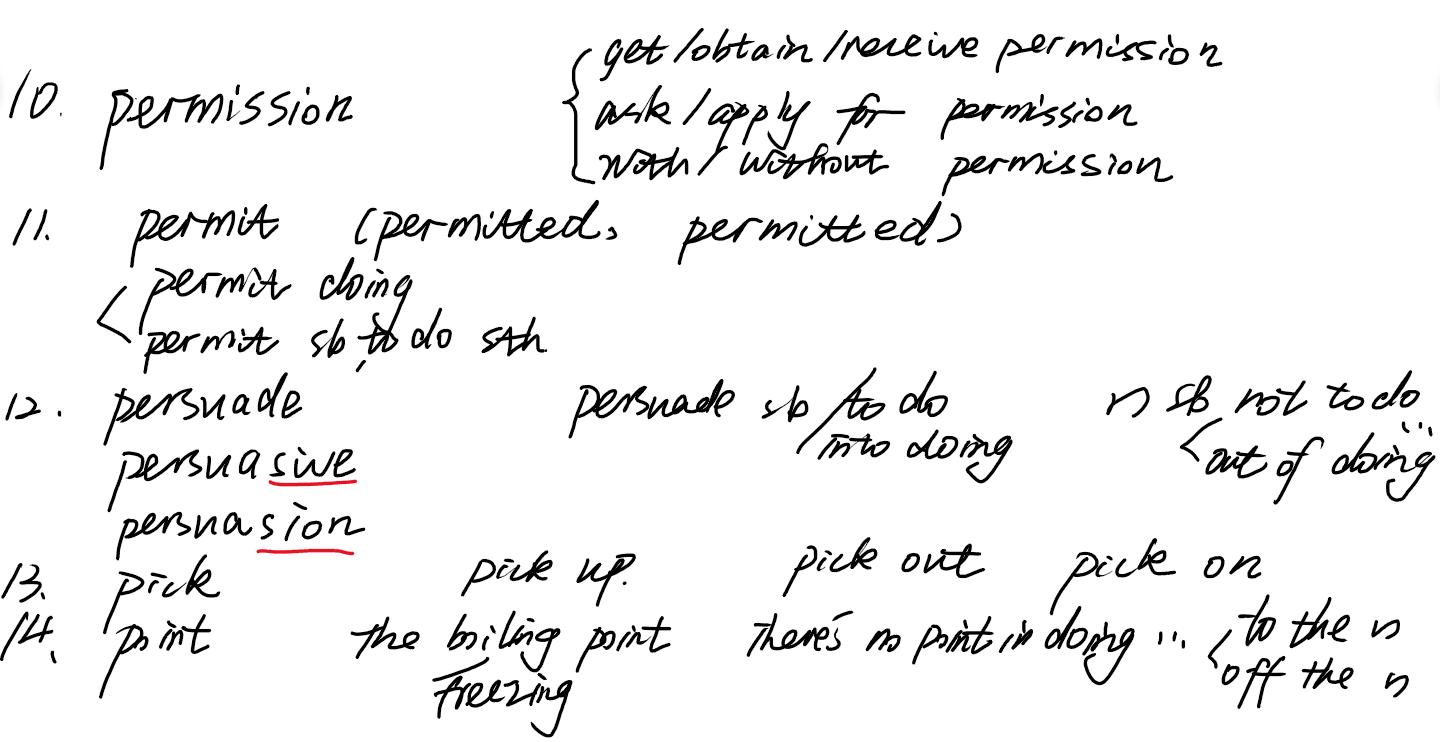 get/obtain/receive permission
10. permission { ask/apply for permission
with/without permission
11. permit (permitted, permitted)
permit doing
permit sb to do sth
12. persuade persuade sb to do ~ sb not to do...
into doing out of doing
persuasive
persuasion
13. pick pick up. pick out pick on
14. point the boiling point There's no point in doing ... to the ~
freezing off the ~